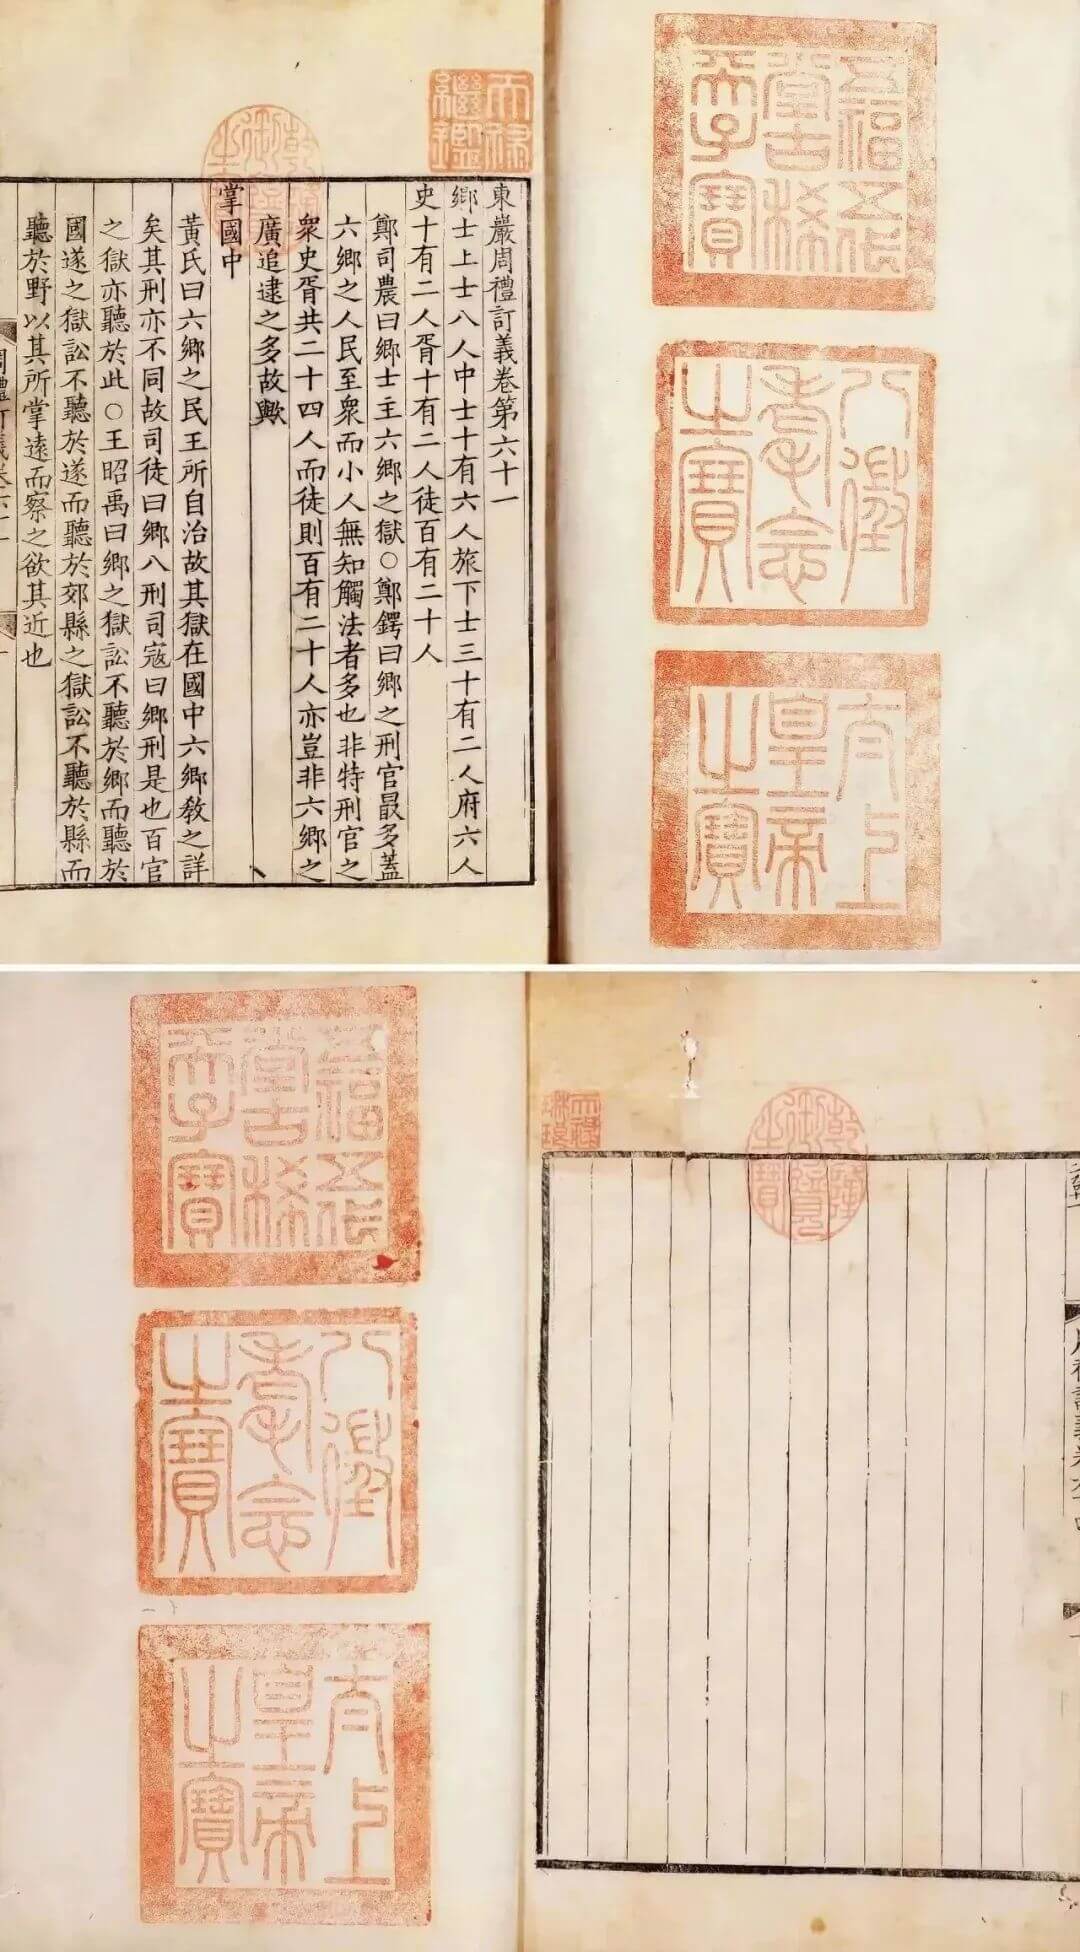 東巖周禮訂義卷第六十一
鄉士上士八人中士十有六人旅下士三十有二人府六人
史十有二人胥十有二人徒百有二十人
鄭司農曰鄉士主六鄉之獄○鄭鍔曰鄉之刑官最多蓋
六鄉之人民至衆而小人無知觸法者多也非特刑官之
衆史胥共二十四人而徒則百有二十人亦豈非六鄉之
廣追逮之多故歟
掌國中
黃氏曰六鄉之民王所自治故其獄在國中六鄉教之詳
矣其刑亦不同故司徒曰鄉八刑司寇曰鄉刑是也百官
之獄亦聽於此○王昭禹曰鄉之獄訟不聽於鄉而聽於
國遂之獄訟不聽於遂而聽於郊縣之獄訟不聽於縣而
聽於野以其所掌遠而察之欲其近也
周禮訂義卷六十一
天祿繼鑑
乾隆御覽之寶
五福五代堂古稀天子寶
八徵耄念之寶
太上皇帝之寶
五福五代堂古稀天子寶
八徵耄念之寶
太上皇帝之寶
天祿琳琅
乾隆御覽之寶